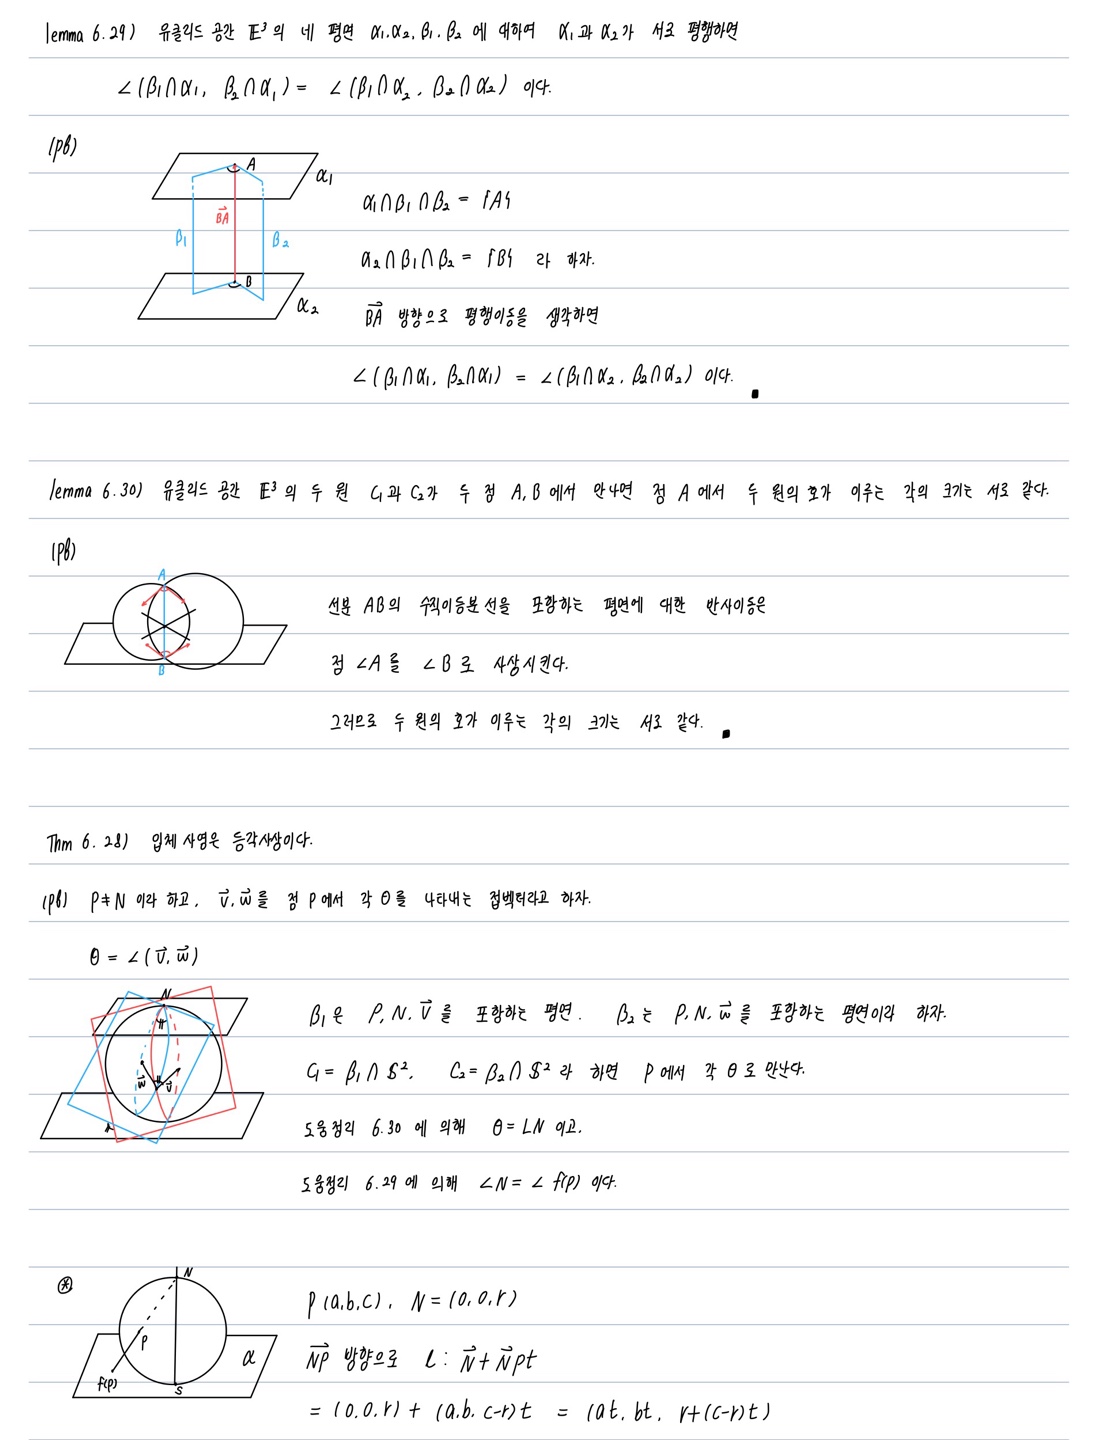 lemma 6.29) 유클리드 공간 E³의 네 평면 α₁, α₂, β₁, β₂에 대하여 α₁과 α₂가 서로 평행하면
∠(β₁∩α₁, β₂∩α₁) = ∠(β₁∩α₂, β₂∩α₂) 이다.
(pf)
A
α₁
BA→
β₁
β₂
B
α₂
α₁∩β₁∩β₂ = {A}
α₂∩β₁∩β₂ = {B} 라 하자.
BA→ 방향으로 평행이동을 생각하면
∠(β₁∩α₁, β₂∩α₁) = ∠(β₁∩α₂, β₂∩α₂) 이다. ∎
lemma 6.30) 유클리드 공간 E³의 두 원 C₁과 C₂가 두 점 A, B에서 만나면 점 A에서 두 원의 호가 이루는 각의 크기는 서로 같다.
(pf)
A
B
선분 AB의 수직이등분선을 포함하는 평면에 대한 반사이동은
점 ∠A를 ∠B로 사상시킨다.
그러므로 두 원의 호가 이루는 각의 크기는 서로 같다. ∎
Thm 6.28) 입체 사영은 등각사상이다.
(pf) P≠N 이라 하고, v→, w→를 점 P에서 각 θ를 나타내는 접벡터라고 하자.
θ = ∠(v→, w→)
N
w→
v→
β₁은 P, N, v→를 포함하는 평면. β₂는 P, N, w→를 포함하는 평면이라 하자.
C₁ = β₁∩S², C₂ = β₂∩S² 라 하면 P에서 각 θ로 만난다.
도움정리 6.30에 의해 θ = ∠N 이고,
도움정리 6.29에 의해 ∠N = ∠f(P) 이다.
⊛
N
P
α
f(P)
S
P(a,b,c), N = (0,0,r)
NP→ 방향으로 l : N→ + N→Pt
= (0,0,r) + (a,b,c-r)t = (at, bt, r+(c-r)t)